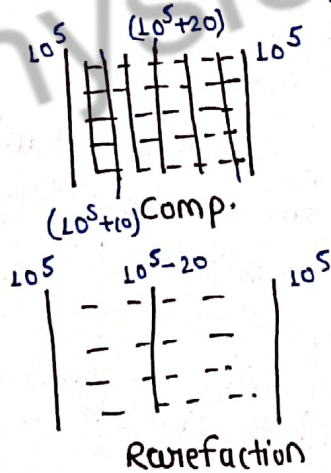 10⁵ (10⁵+20) 10⁵
(10⁵+10) Comp.
10⁵ 10⁵-20 10⁵
Rarefaction